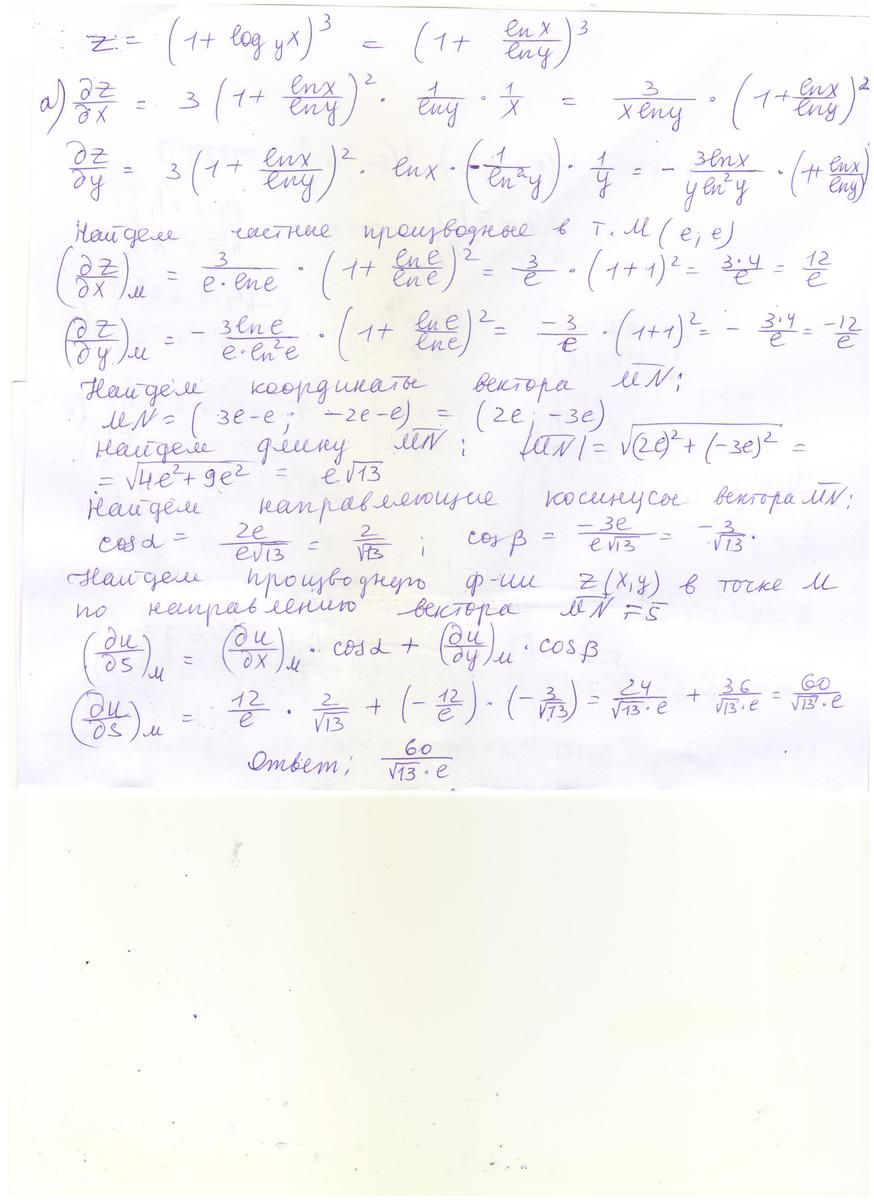 z = (1 + log_y x)^3 = (1 + lnx/lny)^3
а) ∂z/∂x = 3 (1 + lnx/lny)^2 · 1/lny · 1/x = 3/(x lny) · (1 + lnx/lny)^2
∂z/∂y = 3 (1 + lnx/lny)^2 · lnx · (-1/ln^2 y) · 1/y = - 3lnx/(y ln^2 y) · (1+ lnx/lny)
Найдем частные производные в т. М (e; e)
(∂z/∂x)_м = 3/(e·lne) · (1 + lne/lne)^2 = 3/e · (1+1)^2 = 3·4/e = 12/e
(∂z/∂y)_м = - 3lne/(e·ln^2 e) · (1 + lne/lne)^2 = -3/e · (1+1)^2 = - 3·4/e = -12/e
Найдем координаты вектора MN:
MN = (3e-e; -2e-e) = (2e; -3e)
Найдем длину MN: |MN| = √((2e)^2 + (-3e)^2) =
= √(4e^2 + 9e^2) = e√13
Найдем направляющие косинусы вектора MN:
cosα = 2e/(e√13) = 2/√13 ; cosβ = -3e/(e√13) = -3/√13.
Найдем производную ф-ии z(x,y) в точке М
по направлению вектора MN = s
(∂u/∂s)_м = (∂u/∂x)_м · cosα + (∂u/∂y)_м · cosβ
(∂u/∂s)_м = 12/e · 2/√13 + (-12/e) · (-3/√13) = 24/(√13·e) + 36/(√13·e) = 60/(√13·e)
Ответ: 60/(√13·e)